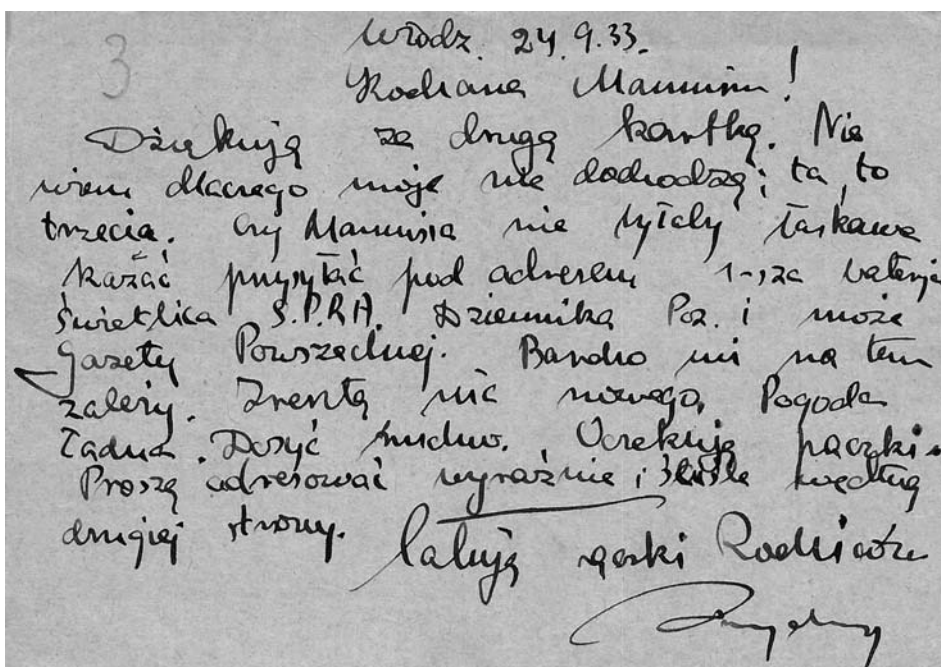 3
Włodz. 24.9.33.
Kochana Mamusiu!
Dziękuję za drugą kartkę. Nie
wiem dlaczego moje nie dochodzą; ta, to
trzecia. Czy Mamusia nie byłaby łaskawa
kazać przysyłać pod adresem 1-sza baterja
Świetlica S.P.R.A. Dziennika Poz. i może
Gazety Powszechnej. Bardzo mi na tem
zależy. Zresztą nic nowego. Pogoda
ładna. Dosyć nudno. Oczekuję paczki.
Proszę adresować wyraźnie i ściśle według
drugiej strony.
Całuję rączki Rodziców